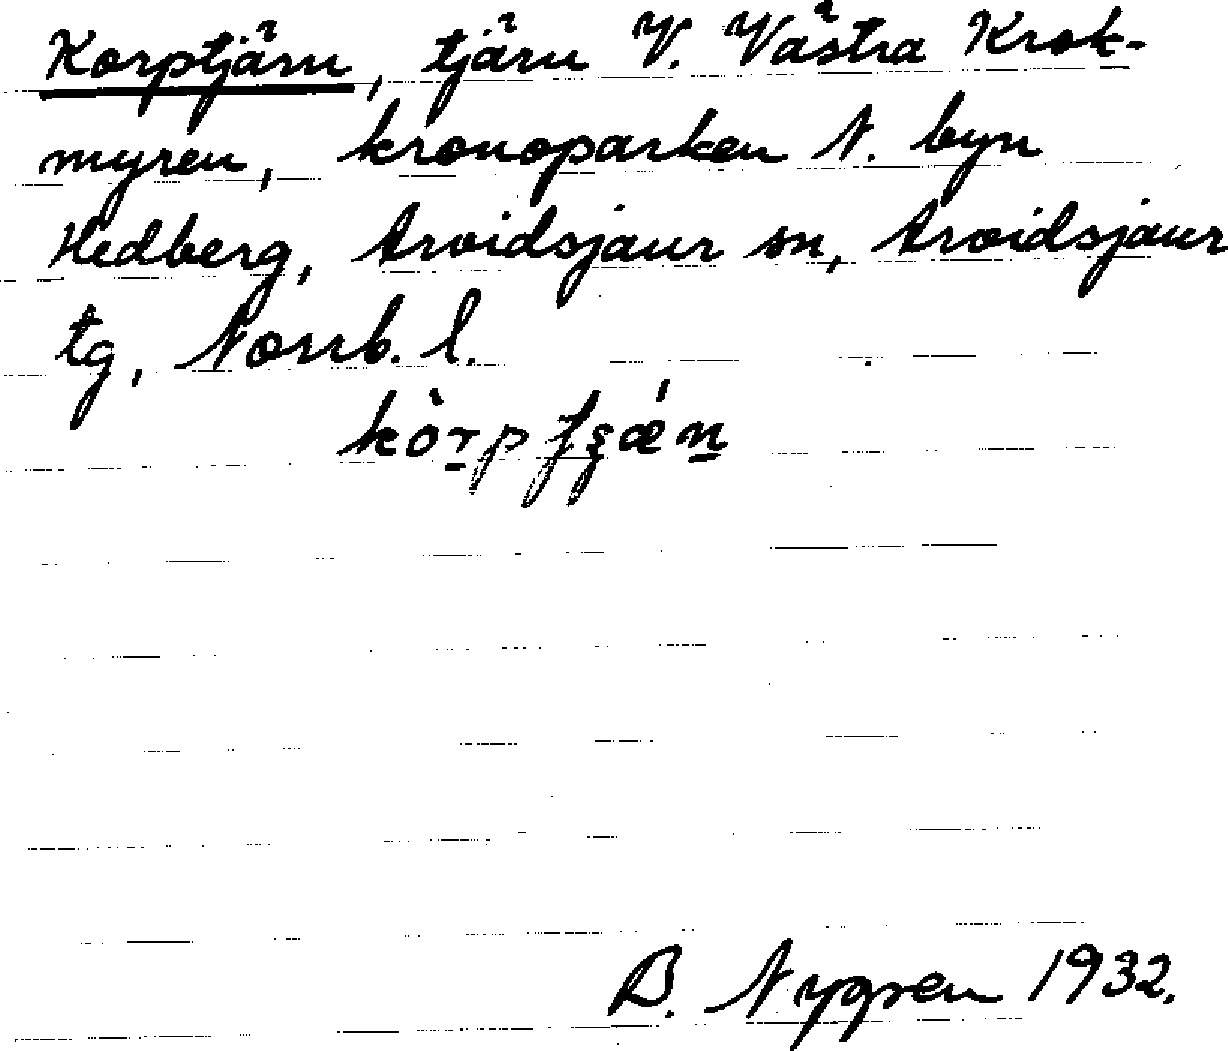 Korptjärn, tjärn V. Västra Krok-
myren, kronoparken N. byn
Hedberg, Arvidsjaur sn, Arvidsjaur
tg, Norrb. l.
B. Nygren 1932.